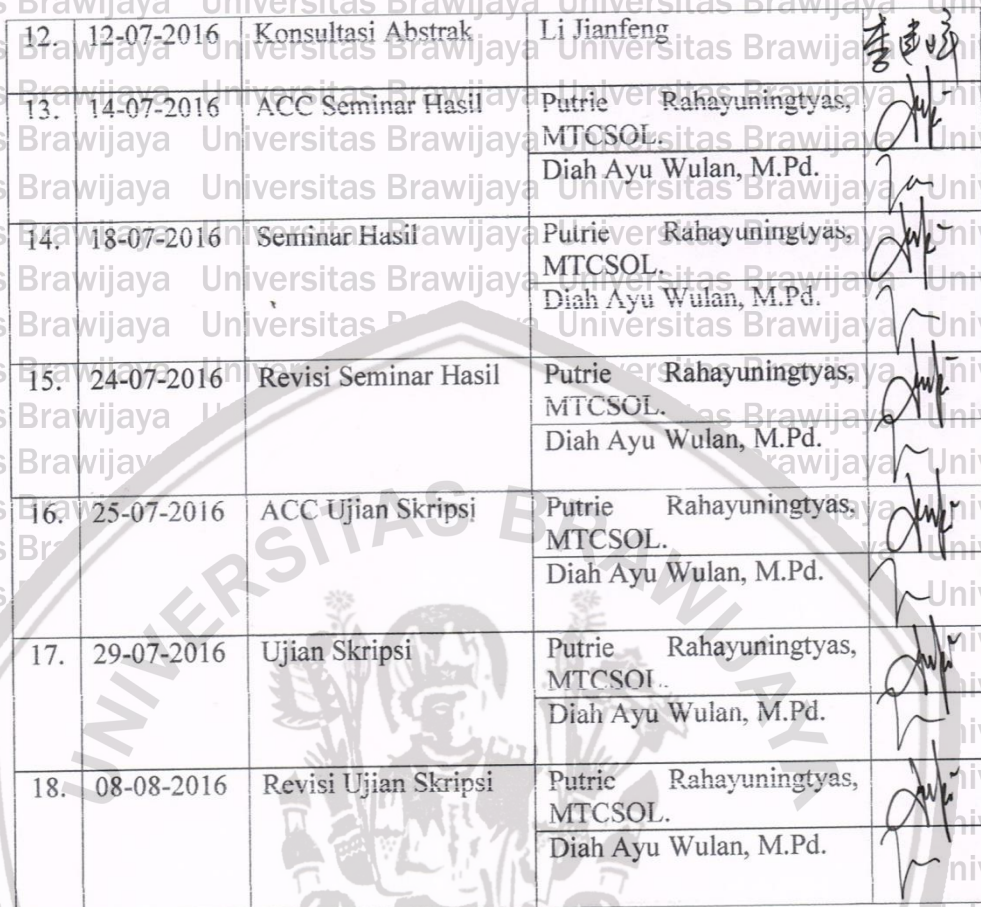 12. 12-07-2016 Konsultasi Abstrak Li Jianfeng 李建峰
13. 14-07-2016 ACC Seminar Hasil Putrie Rahayuningtyas,
MTCSOL.
Diah Ayu Wulan, M.Pd.
14. 18-07-2016 Seminar Hasil Putrie Rahayuningtyas,
MTCSOL.
Diah Ayu Wulan, M.Pd.
15. 24-07-2016 Revisi Seminar Hasil Putrie Rahayuningtyas,
MTCSOL.
Diah Ayu Wulan, M.Pd.
16. 25-07-2016 ACC Ujian Skripsi Putrie Rahayuningtyas,
MTCSOL.
Diah Ayu Wulan, M.Pd.
17. 29-07-2016 Ujian Skripsi Putrie Rahayuningtyas,
MTCSOL.
Diah Ayu Wulan, M.Pd.
18. 08-08-2016 Revisi Ujian Skripsi Putrie Rahayuningtyas,
MTCSOL.
Diah Ayu Wulan, M.Pd.
UNIVERSITAS BRAWIJAYA